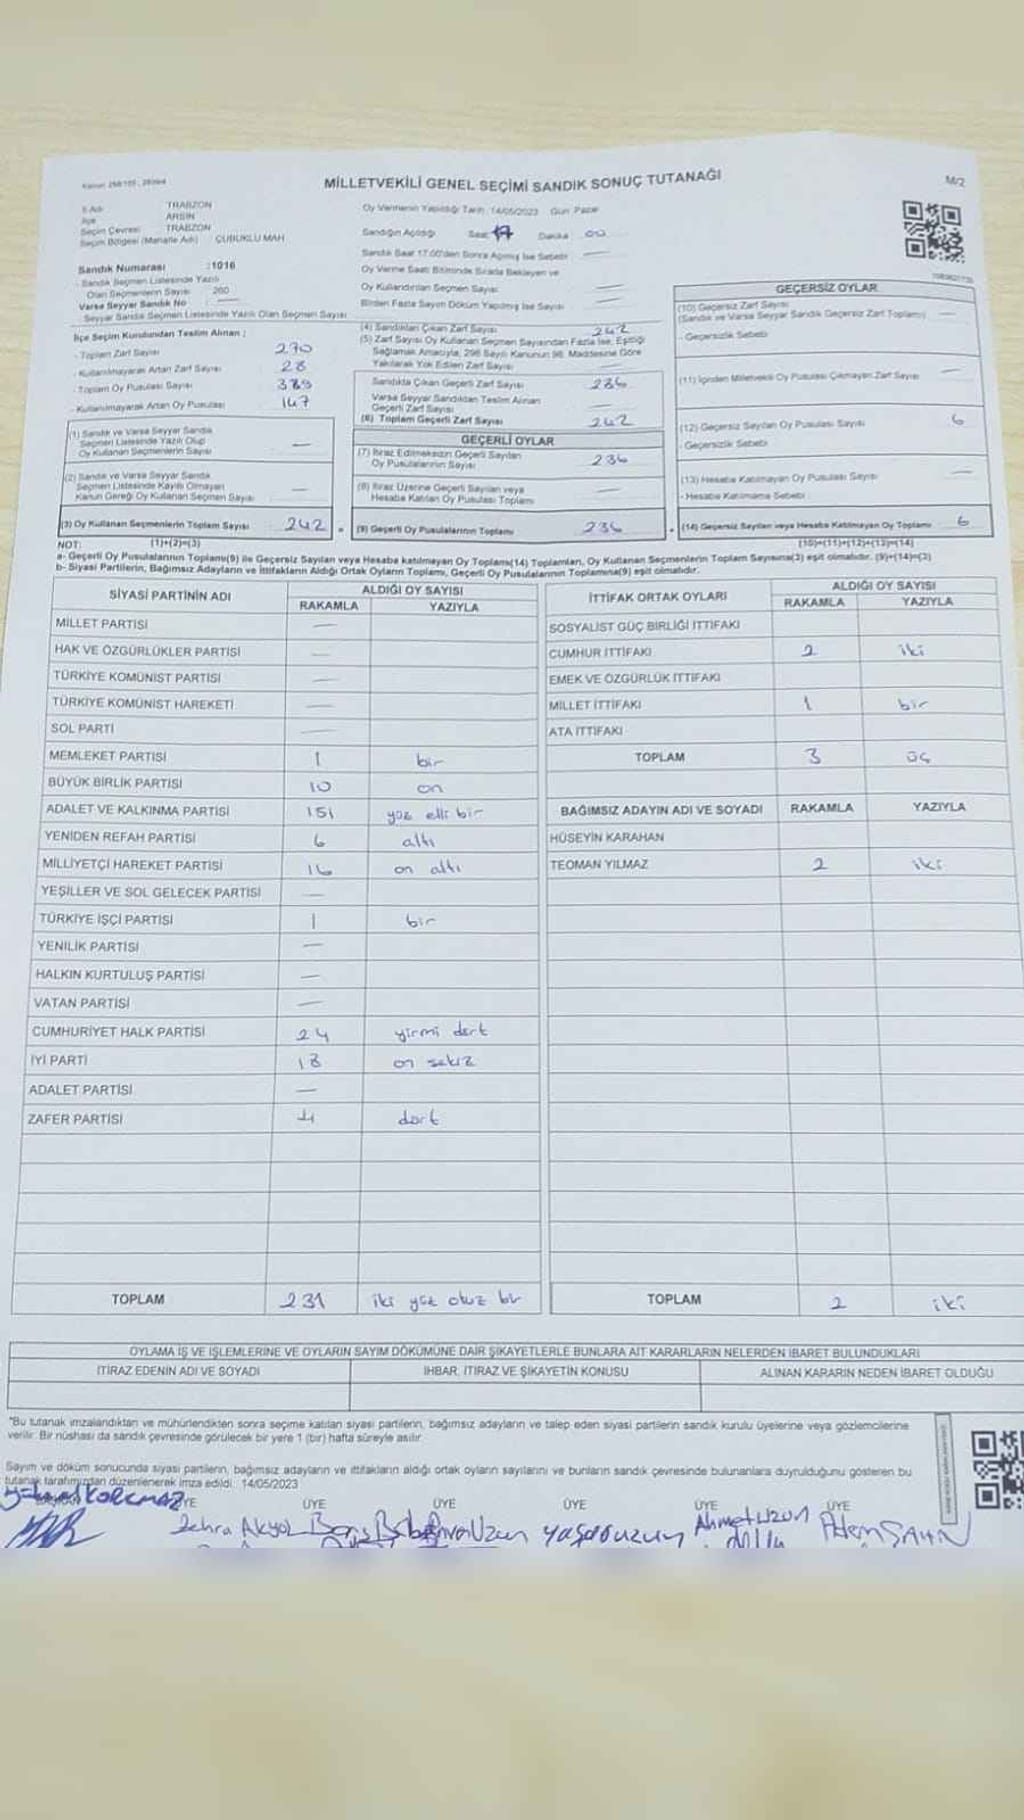 MİLLETVEKİLİ GENEL SEÇİMİ SANDIK SONUÇ TUTANAĞI
M/2
İl Adı TRABZON
İlçe ARSİN
Seçim Çevresi TRABZON
Seçim Bölgesi (Mahalle Adı) ÇUBUKLU MAH
Sandık Numarası :1016
Sandık Seçmen Listesinde Yazılı
Olan Seçmenlerin Sayısı 260
Varsa Seyyar Sandık No —
Seyyar Sandık Seçmen Listesinde Yazılı Olan Seçmen Sayısı
Oy Vermenin Yapıldığı Tarih: 14/05/2023 Gün: Pazar
Sandığın Açıldığı Saat: 17 Dakika 00
Sandık Saat 17:00'den Sonra Açılmış İse Sebebi —
Oy Verme Saati Bitiminde Sırada Bekleyen ve
Oy Kullandırılan Seçmen Sayısı —
Birden Fazla Sayım Döküm Yapılmış İse Sayısı —
İlçe Seçim Kurulundan Teslim Alınan ;
- Toplam Zarf Sayısı 270
- Kullanılmayarak Artan Zarf Sayısı 28
- Toplam Oy Pusulası Sayısı 389
- Kullanılmayarak Artan Oy Pusulası 147
(1) Sandık ve Varsa Seyyar Sandık
Seçmen Listesinde Yazılı Olup
Oy Kullanan Seçmenlerin Sayısı —
(2) Sandık ve Varsa Seyyar Sandık
Seçmen Listesinde Kayıtlı Olmayan
Kanun Gereği Oy Kullanan Seçmen Sayısı —
(3) Oy Kullanan Seçmenlerin Toplam Sayısı 242
(1)+(2)=(3)
(4) Sandıktan Çıkan Zarf Sayısı 242
(5) Zarf Sayısı Oy Kullanan Seçmen Sayısından Fazla İse, Eşitliği
Sağlamak Amacıyla, 298 Sayılı Kanunun 98. Maddesine Göre
Yakılarak Yok Edilen Zarf Sayısı —
Sandıkta Çıkan Geçerli Zarf Sayısı 236
Varsa Seyyar Sandıktan Teslim Alınan
Geçerli Zarf Sayısı —
(6) Toplam Geçerli Zarf Sayısı 242
GEÇERLİ OYLAR
(7) İtiraz Edilmeksizin Geçerli Sayılan
Oy Pusulalarının Sayısı 236
(8) İtiraz Üzerine Geçerli Sayılan veya
Hesaba Katılan Oy Pusulası Toplamı —
(9) Geçerli Oy Pusulalarının Toplamı 236
GEÇERSİZ OYLAR
(10) Geçersiz Zarf Sayısı
(Sandık ve Varsa Seyyar Sandık Geçersiz Zarf Toplamı) —
- Geçersizlik Sebebi
(11) İçinden Milletvekili Oy Pusulası Çıkmayan Zarf Sayısı —
(12) Geçersiz Sayılan Oy Pusulası Sayısı 6
- Geçersizlik Sebebi
(13) Hesaba Katılmayan Oy Pusulası Sayısı —
- Hesaba Katılmama Sebebi
(14) Geçersiz Sayılan veya Hesaba Katılmayan Oy Toplamı 6
(10)+(11)+(12)+(13)=(14)
NOT:
a- Geçerli Oy Pusulalarının Toplamı(9) ile Geçersiz Sayılan veya Hesaba katılmayan Oy Toplamı(14) Toplamları, Oy Kullanan Seçmenlerin Toplam Sayısına(3) eşit olmalıdır. (9)+(14)=(3)
b- Siyasi Partilerin, Bağımsız Adayların ve İttifakların Aldığı Ortak Oyların Toplamı, Geçerli Oy Pusulalarının Toplamına(9) eşit olmalıdır.
SİYASİ PARTİNİN ADI
ALDIĞI OY SAYISI
RAKAMLA YAZIYLA
MİLLET PARTİSİ —
HAK VE ÖZGÜRLÜKLER PARTİSİ —
TÜRKİYE KOMÜNİST PARTİSİ —
TÜRKİYE KOMÜNİST HAREKETİ —
SOL PARTİ —
MEMLEKET PARTİSİ 1 bir
BÜYÜK BİRLİK PARTİSİ 10 on
ADALET VE KALKINMA PARTİSİ 151 yüz elli bir
YENİDEN REFAH PARTİSİ 6 altı
MİLLİYETÇİ HAREKET PARTİSİ 16 on altı
YEŞİLLER VE SOL GELECEK PARTİSİ —
TÜRKİYE İŞÇİ PARTİSİ 1 bir
YENİLİK PARTİSİ —
HALKIN KURTULUŞ PARTİSİ —
VATAN PARTİSİ —
CUMHURİYET HALK PARTİSİ 24 yirmi dört
İYİ PARTİ 18 on sekiz
ADALET PARTİSİ —
ZAFER PARTİSİ 4 dört
TOPLAM 231 iki yüz otuz bir
İTTİFAK ORTAK OYLARI
ALDIĞI OY SAYISI
RAKAMLA YAZIYLA
SOSYALİST GÜÇ BİRLİĞİ İTTİFAKI
CUMHUR İTTİFAKI 2 iki
EMEK VE ÖZGÜRLÜK İTTİFAKI
MİLLET İTTİFAKI 1 bir
ATA İTTİFAKI
TOPLAM 3 üç
BAĞIMSIZ ADAYIN ADI VE SOYADI RAKAMLA YAZIYLA
HÜSEYİN KARAHAN
TEOMAN YILMAZ 2 iki
TOPLAM 2 iki
OYLAMA İŞ VE İŞLEMLERİNE VE OYLARIN SAYIM DÖKÜMÜNE DAİR ŞİKAYETLERLE BUNLARA AİT KARARLARIN NELERDEN İBARET BULUNDUKLARI
İTİRAZ EDENİN ADI VE SOYADI İHBAR, İTİRAZ VE ŞİKAYETİN KONUSU ALINAN KARARIN NEDEN İBARET OLDUĞU
"Bu tutanak imzalandıktan ve mühürlendikten sonra seçime katılan siyasi partilerin, bağımsız adayların ve talep eden siyasi partilerin sandık kurulu üyelerine veya gözlemcilerine
verilir. Bir nüshası da sandık çevresinde görülecek bir yere 1 (bir) hafta süreyle asılır.
Sayım ve döküm sonucunda siyasi partilerin, bağımsız adayların ve ittifakların aldığı ortak oyların sayılarını ve bunların sandık çevresinde bulunanlara duyrulduğunu gösteren bu
tutanak tarafımızdan düzenlenerek imza edildi. 14/05/2023
ÜYE ÜYE ÜYE ÜYE ÜYE ÜYE
KORKMAZ Zehra Akyol Yaşar Uzun Ahmet Uzun Adem ŞAHİN